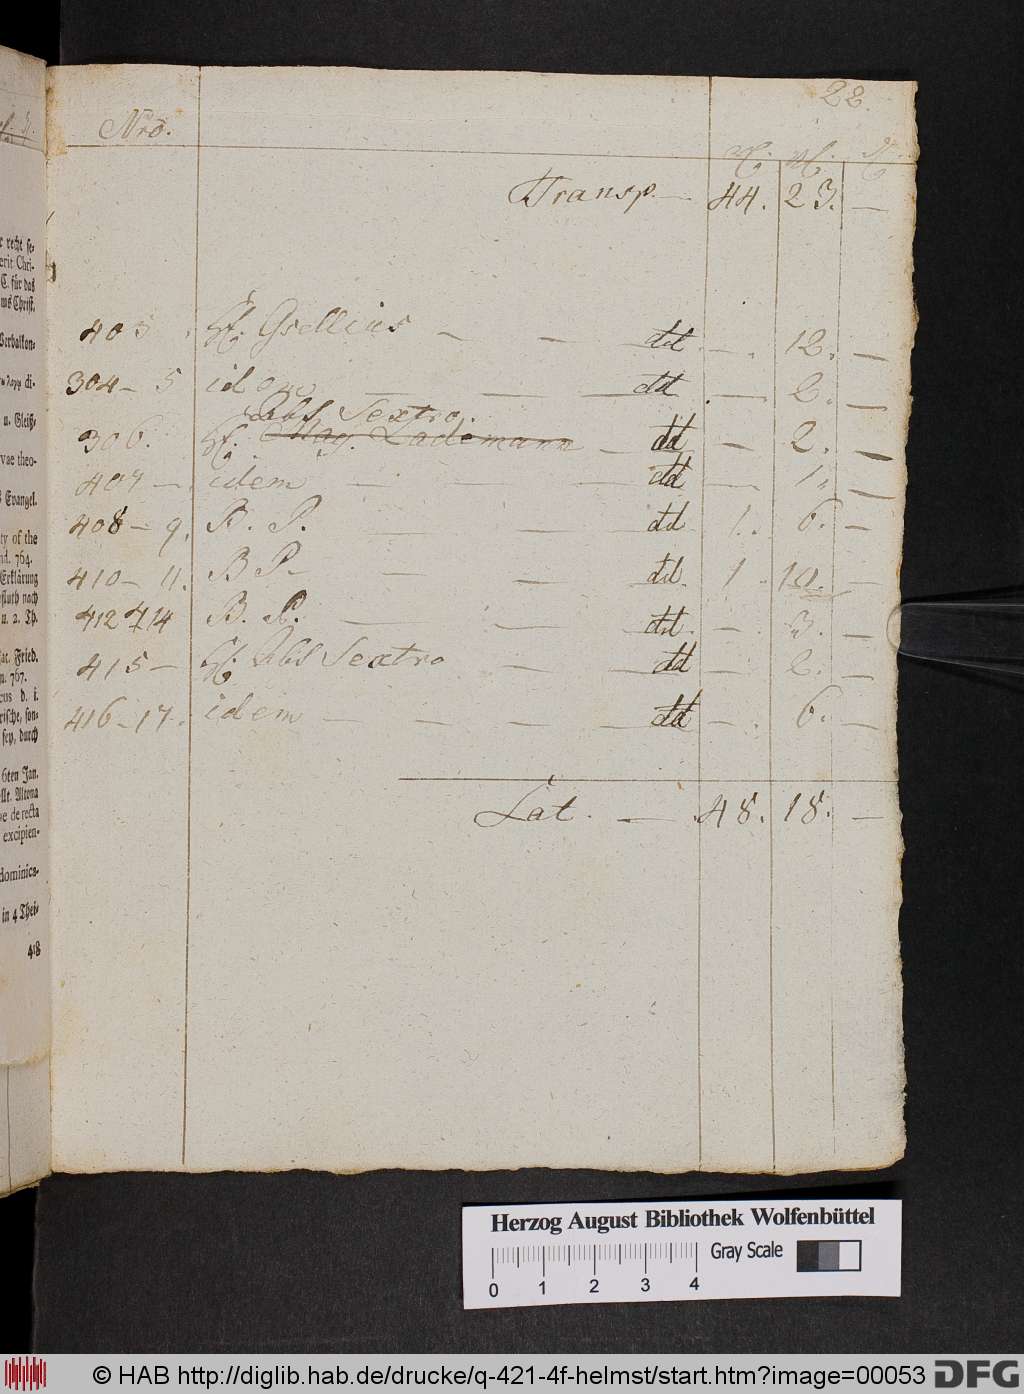 22.
Nro.
Transp. — 44. 23. —
403. H. Gsellius — — — dd — . 12. —
304 — 5 idem — — dd . — 2. —
Abt Sextro.
306. H. Mag. Lademann — dd — 2. —
407 — . idem — — — dd — 1. —
408 — 9. B. P. — — dd 1. 6. —
410 — 11. B P. — — dd. 1. 10. —
412 & 14 B. P. — — — dd. — . 3. —
415 — H. Abt Sextro — — dd — 2. —
416 — 17. idem — — — — dd — . 6. —
Lat. — . 48. 18. —
r recht se-
erit Chri-
C. für das
ms Christ.
Verbalkon-
di-
u. Gleiß-
vae theo-
Evangel.
ty of the
nd. 764.
Erklärung
nach
u. 2. Th.
ac. Fried.
n. 767.
cus d. i.
rische, son-
sey, durch
6ten Jan.
llt. Altona
ne de recta
excipien-
dominica-
in 4 Thei-
418
Herzog August Bibliothek Wolfenbüttel
Gray Scale
0 1 2 3 4
© HAB http://diglib.hab.de/drucke/q-421-4f-helmst/start.htm?image=00053 DFG